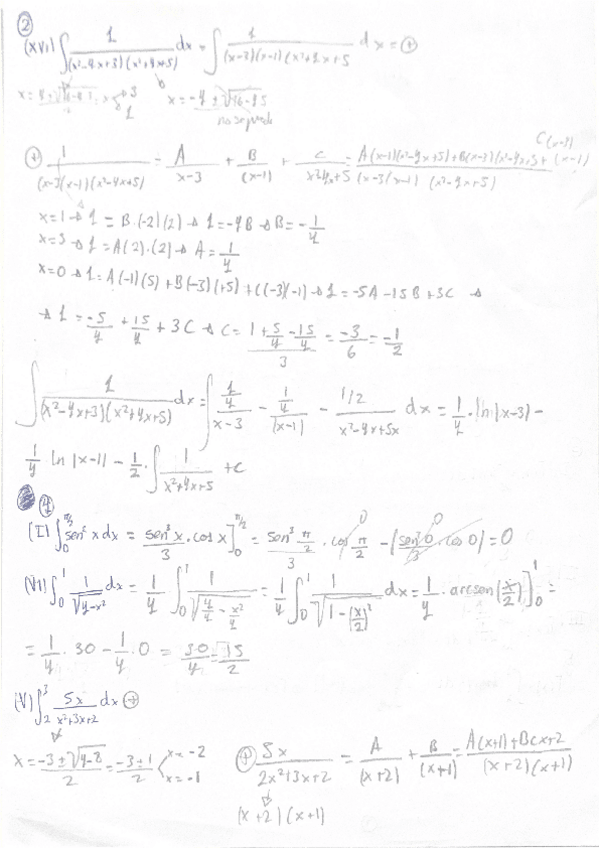 ②
(XVI) ∫ 1/((x²-4x+3)(x²+4x+5)) dx = ∫ 1/((x-3)(x-1)(x²+4x+5)) dx = ⊕
⊕ 1/((x-3)(x-1)(x²-4x+5)) = A/(x-3) + B/(x-1) + C/(x²-4x+5) = (A(x-1)(x²-4x+5)+B(x-3)(x²-4x+5)+C(x-3)(x-1))/((x-3)(x-1)(x²-4x+5))
x=1 → 1 = B·(-2)(2) → 1=-4B → B=-1/4
x=3 → 1=A(2)·(2) → A=1/4
x=0 → 1=A(-1)(5)+B(-3)(+5)+C(-3)(-1) → 1=-5A-15B+3C →
→ 1=-5/4+15/4+3C → C=(1+5/4-15/4)/3=-3/6=-1/2
∫ 1/((x²-4x+3)(x²+4x+5)) dx = ∫ (1/4)/(x-3) - (1/4)/(x-1) - (1/2)/(x²-4x+5x) dx = 1/4·ln|x-3| -
1/4 ln|x-1| - 1/2·∫ 1/(x²+4x+5) +c
④
(I) ∫₀^(π/2) sen² x dx = sen³x/3 · cos x ]₀^(π/2) = (sen³ π/2)/3 · cos π/2 - (sen³0/3 · cos 0) = 0
(VI) ∫₀¹ 1/√(4-x²) dx = 1/4 ∫₀¹ 1/√(4/4 - x²/4) = 1/4 ∫₀¹ 1/√(1-(x/2)²) dx = 1/4 · arcsen(x/2) ]₀¹ =
= 1/4 · 30 - 1/4 · 0 = 30/4 = 15/2
(V) ∫₂³ 5x/(x²+3x+2) dx ⊕
x=(-3±√(9-8))/2=(-3±1)/2 x=-2 x=-1
⊕ 5x/(2x²+3x+2) = A/(x+2) + B/(x+1) = (A(x+1)+B(x+2)/((x+2)(x+1))
(x+2)(x+1)